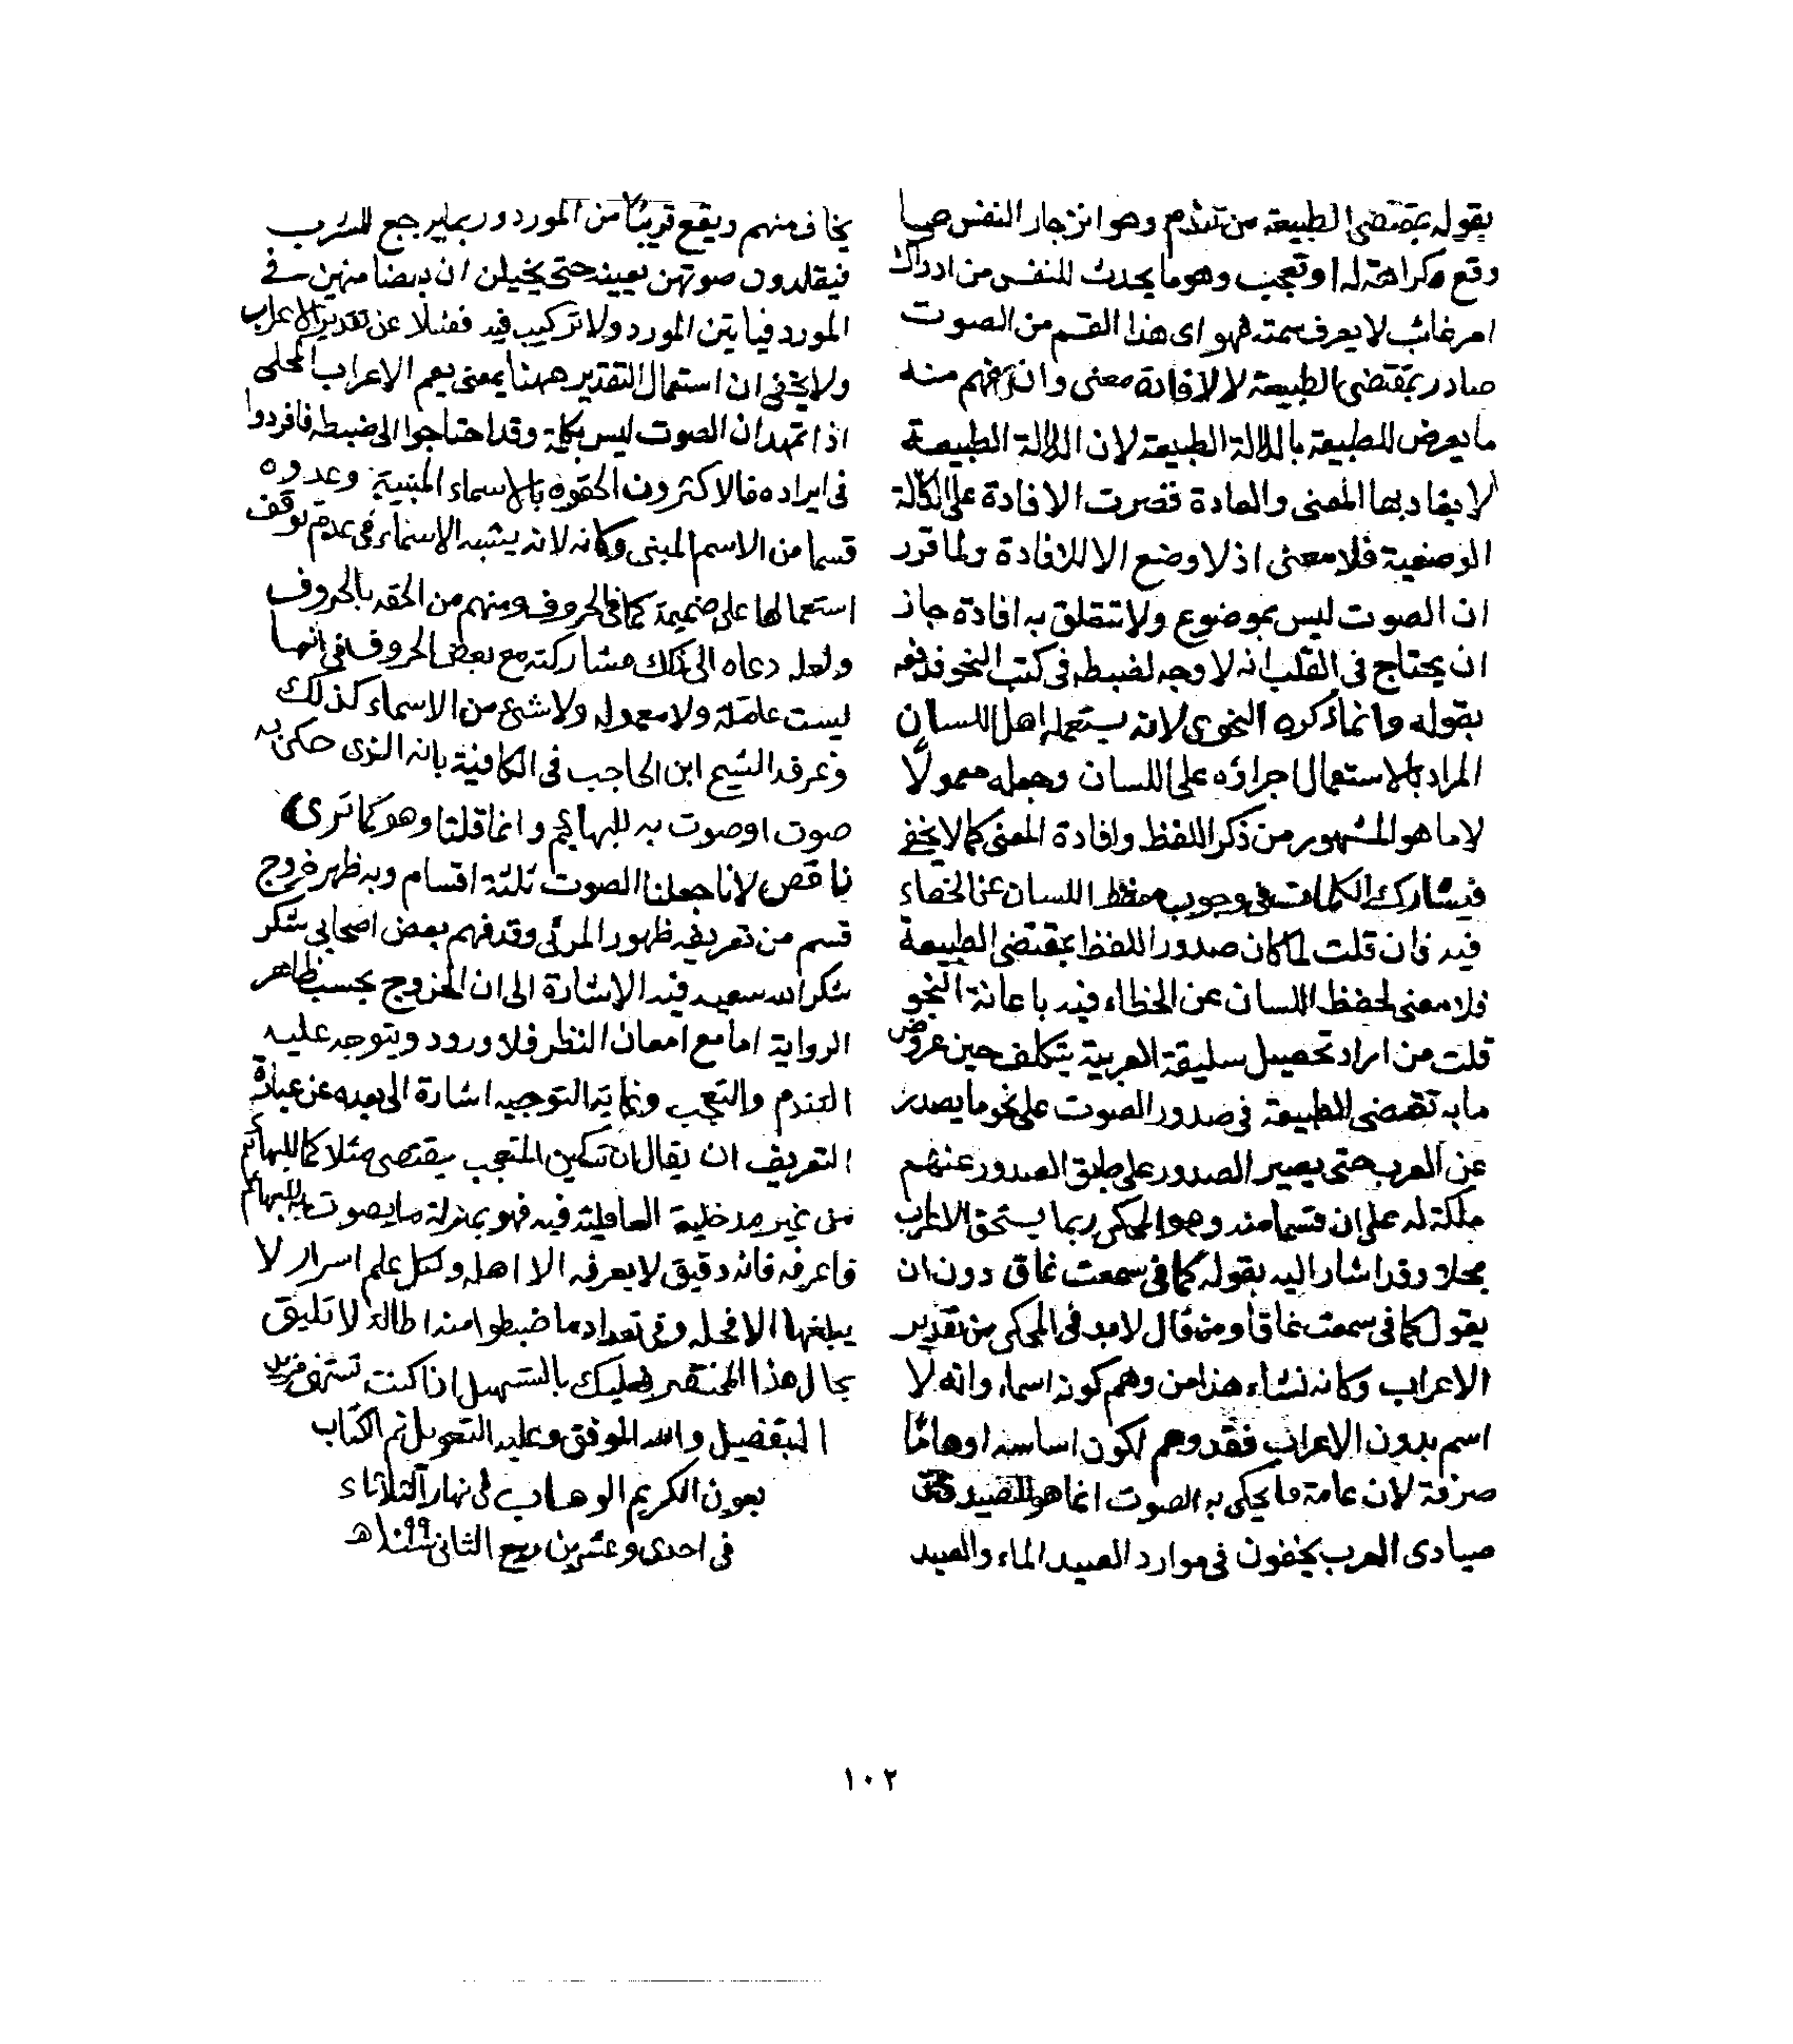 يقوله بمقتضى الطبيعة من تندم وهو انزجار النفس مما
وقع وكراهته له او تعجب وهو ما يحدث للنفس من ادراك
امر غائب لا يعرف سمته فهو اى هذا القسم من الصوت
صادر بمقتضى الطبيعة لا لافادة معنى وان فهم منه
ما يعرض للطبيعة بالدلالة الطبيعة لان الدلالة الطبيعة
لا يفاد بها المعنى والعادة قصرت الافادة على الدلالة
الوضعية فلا معنى اذ لا وضع الا للافادة ولما قرر
ان الصوت ليس بموضوع ولا تتعلق به افادة جاز
ان يحتاج فى القلب انه لا وجه لضبطه فى كتب النحو فدفعه
بقوله وانما ذكره النحوى لانه يستعمله اهل اللسان
المراد بالاستعمال اجراؤه على اللسان وجعله معمولا
لا ما هو المشهور من ذكر اللفظ وافادة المعنى كما لا يخفى
فيشارك الكلمات فى وجوب حفظ اللسان عن الخطاء
فيه فان قلت لما كان صدور اللفظ بمقتضى الطبيعة
فلا معنى لحفظ اللسان عن الخطاء فيه باعانة النحو
قلت من اراد تحصيل سليقة العربية يتكلف حين عروض
ما به تقتضى الطبيعة فى صدور الصوت على نحو ما يصدر
عن العرب حتى يصير الصدور على طبق الصدور عنهم
ملكة له على ان قسما منه وهو المحكى ربما يستحق الاعراب
محلا وقد اشار اليه بقوله كما فى سمعت غاق دون ان
يقول كما فى سمعت غاقا ومن قال لا بد فى المحكى من تقدير
الاعراب وكانه نشاء هذا من وهم كونه اسما وانه لا
اسم بدون الاعراب فقد وهم لكون اساسه اوهاما
صرفة لان عامة ما يحكى به الصوت انما هو للصيد
صيادى العرب يخفون فى موارد الصيد الماء والصيد
يخاف منهم ويقع قريبا من المورد وربما يرجع للشرب
فيقلدون صوتهن بعينه حتى يخيلن ان بعضا منهن فى
المورد فياتين المورد ولا تركيب فيه فضلا عن تقدير الاعراب
ولا يخفى ان استعمال التقدير ههنا بمعنى يعم الاعراب المحلى
اذا تمهد ان الصوت ليس بكلمة وقد احتاجوا الى ضبطه فافردوا
فى ايراده فالاكثرون الحقوه بالاسماء المبنية وعدوه
قسما من الاسم المبنى وكانه لانه يشبه الاسماء فى عدم توقف
استعمالها على ضميمة كما فى الحروف ومنهم من الحقه بالحروف
ولعله دعاه الى ذلك مشاركته مع بعض الحروف فى انها
ليست عاملة ولا معمولة ولا شئ من الاسماء كذلك
وعرفه الشيخ ابن الحاجب فى الكافية بانه الذى حكى به
صوت او صوت به للبهايم وانما قلنا وهو كما ترى
ناقص لانا جعلنا الصوت ثلثة اقسام وبه ظهر خروج
قسم من تعريفه ظهور المرئى وقد فهم بعض اصحابى شكر
شكر الله سعيه فيه الاشارة الى ان الخروج بحسب ظاهر
الرواية اما مع امعان النظر فلا ورود ويتوجه عليه
التندم والتعجب وغاية التوجيه اشارة الى بعده عن عبارة
التعريف ان يقال ان تسكين المتعجب يقتضى مثلا كما للبهائم
من غير مدخلية العاقلية فيه فهو بمنزلة ما يصوت به للبهائم
فاعرفه فانه دقيق لا يعرفه الا اهله ولكل علم اسرار لا
يبلغها الا فحله وفى تعداد ما ضبطوا منه اطالة لا تليق
بحال هذا المختصر فعليك بالتسهيل اذا كنت تشتهى مزيد
التفصيل والله الموفق وعليه التعويل تم الكتاب
بعون الكريم الوهاب فى نهار الثلاثاء
فى احدى وعشرين ربيع الثانى
١٠٢